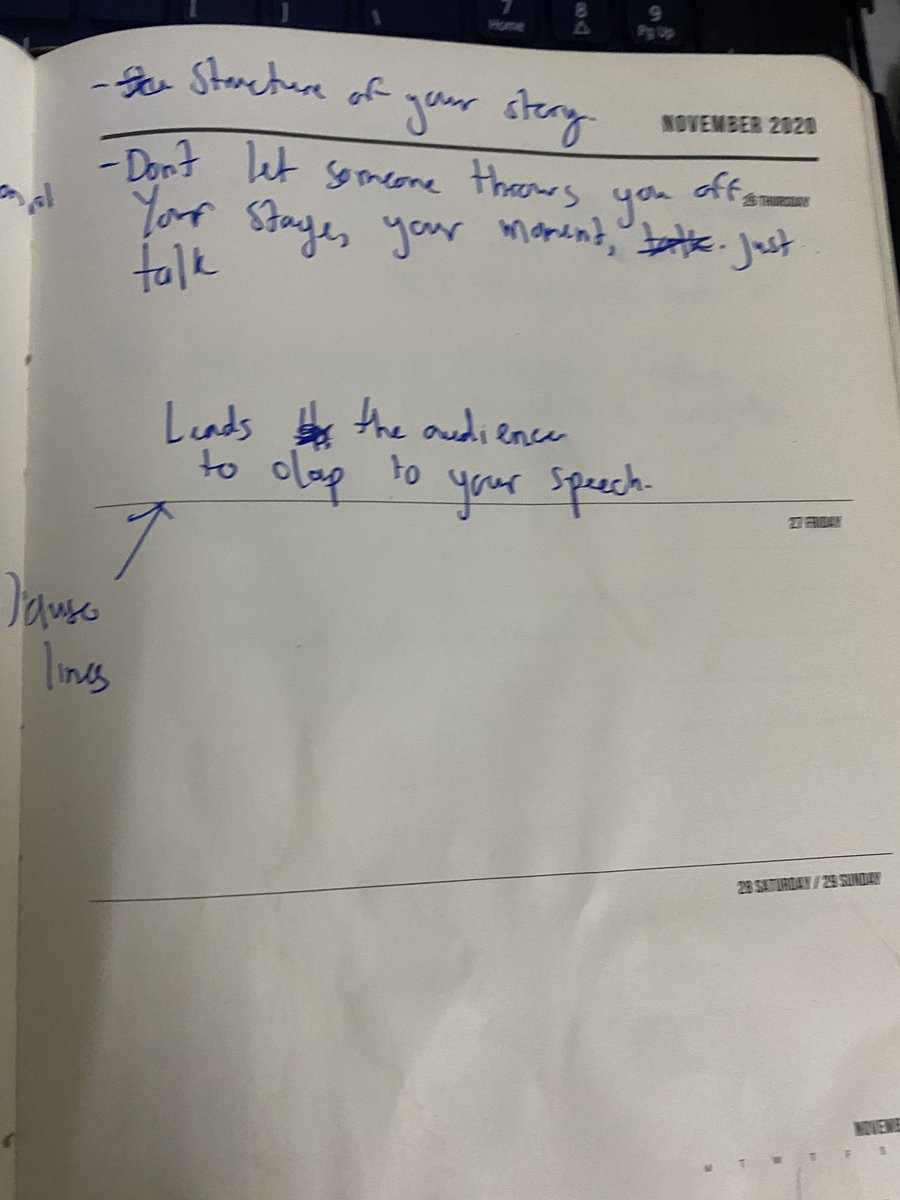 7
Home
8
9
Pg Up
- Structure of your story.
NOVEMBER 2020
- Don't let someone throws you off
26 THURSDAY
Your stage, your moment, talk. Just
talk
Leads the audience
to clap to your speech.
27 FRIDAY
lines
28 SATURDAY / 29 SUNDAY
NOVEMB
M T W T F S